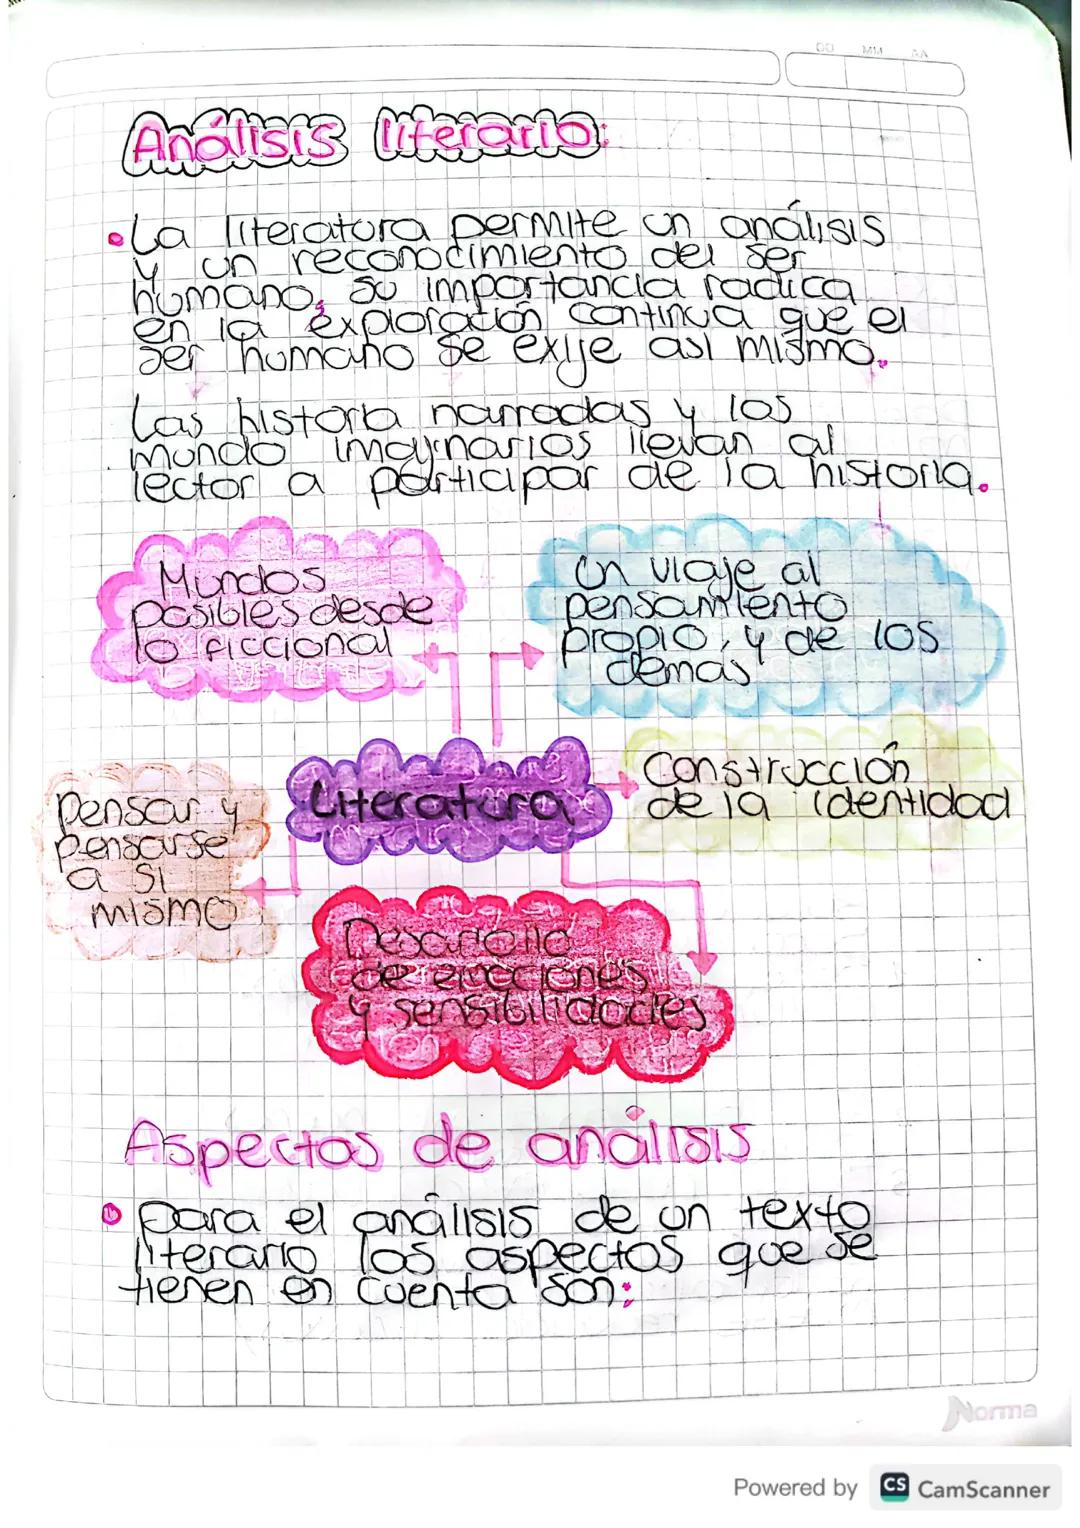 DD MM AA
Análisis literario:
• La literatura permite un análisis
y un reconocimiento del ser
humano, su importancia radica
en la exploración continua que el
ser humano se exije asi mismo.
Las historia narradas y los
mundo imaginarios llevan al
lector a participar de la historia.
Mundos
posibles desde
lo ficcional
Un viaje al
pensamiento
propio, y de los
demás
Literatura
Construcción
de la identidad
Pensar y
pensarse
a si
mismo
Desarrollo
de emociones
y sensibilidades
Aspectos de análisis
• para el análisis de un texto
literario los aspectos que se
tienen en cuenta son:
Norma
Powered by CS CamScanner